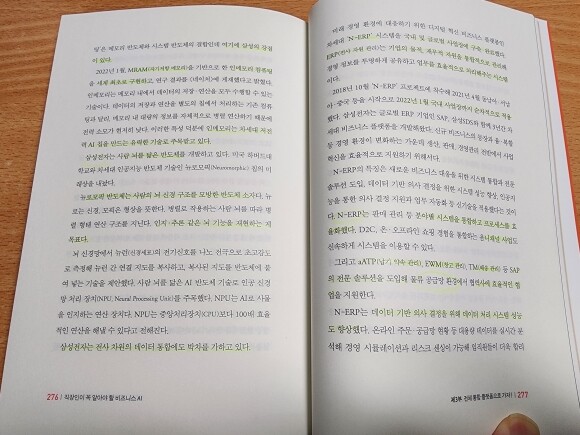 팅은 메모리 반도체와 시스템 반도체의 결합인데 여기에 삼성의 강점
이 있다.
2022년 1월, MRAM(자기저항 메모리)을 기반으로 한 인메모리 컴퓨팅
을 세계 최초로 구현하고, 연구 결과를 〈네이처〉에 게재했다고 밝혔다.
인메모리는 메모리 내에서 데이터의 저장·연산을 모두 수행할 수 있는
기술이다. 데이터의 저장과 연산을 별도의 칩에서 처리하는 기존 컴퓨
터와 달리, 메모리 내 대량의 정보를 자체적으로 병렬 연산하기 때문에
전력 소모가 현저히 낮다. 이러한 특성 덕분에 인메모리는 차세대 저전
력 AI 칩을 만드는 유력한 기술로 주목받고 있다.
삼성전자는 사람 뇌를 닮은 반도체를 개발하고 있다. 미국 하버드 대
학교와 차세대 인공지능 반도체 기술인 뉴로모픽(Neuromorphic) 칩의 미
래상을 내놨다.
뉴로모픽 반도체는 사람의 뇌 신경 구조를 모방한 반도체 소자다. 뉴
로는 신경, 모픽은 형상을 뜻한다. 병렬로 작용하는 사람 뇌를 따라 병
렬 형태 연산 구조를 지닌다. 인지·추론 같은 뇌 기능을 재현하는 게
목표다.
뇌 신경망에서 뉴런(신경세포)의 전기신호를 나노 전극으로 초고감도
로 측정해 뉴런 간 연결 지도를 복사하고, 복사된 지도를 반도체에 붙
여 넣는 기술을 제안했다. 사람 뇌를 닮은 AI 반도체 기술로 인공 신경
망 처리 장치(NPU, Neural Processing Unit)를 주목했다. NPU는 AI로 사물
을 인지하는 연산 장치다. NPU는 중앙처리장치(CPU)보다 100배 효율
적인 연산을 해낼 수 있다고 전해진다.
삼성전자는 전사 자원의 데이터 통합에도 박차를 가하고 있다.
276 | 직장인이 꼭 알아야 할 비즈니스 AI
미래 경영 환경에 대응하기 위한 디지털 혁신 비즈니스 플랫폼인
차세대 'N-ERP' 시스템을 국내 및 글로벌 사업장에 구축 완료했다.
ERP(전사 자원 관리)는 기업의 물적, 재무적 자원을 통합적으로 관리해
경영 정보를 투명하게 공유하고 업무를 효율적으로 처리해주는 시스템
이다.
2018년 10월 'N-ERP' 프로젝트에 착수해 2021년 4월 동남아·서남
아·중국 등을 시작으로 2022년 1월 국내 사업장까지 순차적으로 적용
했다. 삼성전자는 글로벌 ERP 기업인 SAP, 삼성SDS와 함께 3년간 차
세대 비즈니스 플랫폼을 개발해왔다. 신규 비즈니스의 등장과 융·복합
등 경영 환경이 변화하는 가운데 생산, 판매, 경영관리 전반에서 사업
혁신을 효율적으로 지원하기 위해서다.
N-ERP의 특징은 새로운 비즈니스 대응을 위한 시스템 통합과 전문
솔루션 도입, 데이터 기반 의사 결정을 위한 시스템 성능 향상, 인공지
능을 통한 의사 결정 지원과 업무 자동화 등 신기술을 적용했다는 것이
다. N-ERP는 판매 관리 등 분야별 시스템을 통합하고 프로세스를 효
율화했다. D2C, 온·오프라인 쇼핑 경험을 통합하는 옴니채널 사업도
신속하게 시스템을 이용할 수 있다.
그리고 aATP(납기 약속 관리), EWM(창고 관리), TM(배송 관리) 등 SAP
의 전문 솔루션을 도입해 물류 공급망 환경에서 협력사에 효율적인 협
업을 지원한다.
N-ERP는 데이터 기반 의사 결정을 위해 데이터 처리 시스템 성능
도 향상했다. 온라인 주문·공급망 현황 등 대용량 데이터를 실시간 분
석해 경영 시뮬레이션과 리스크 센싱이 가능해 임직원들이 더욱 합리
제5부 전체 통합 플랫폼으로 가자! | 277